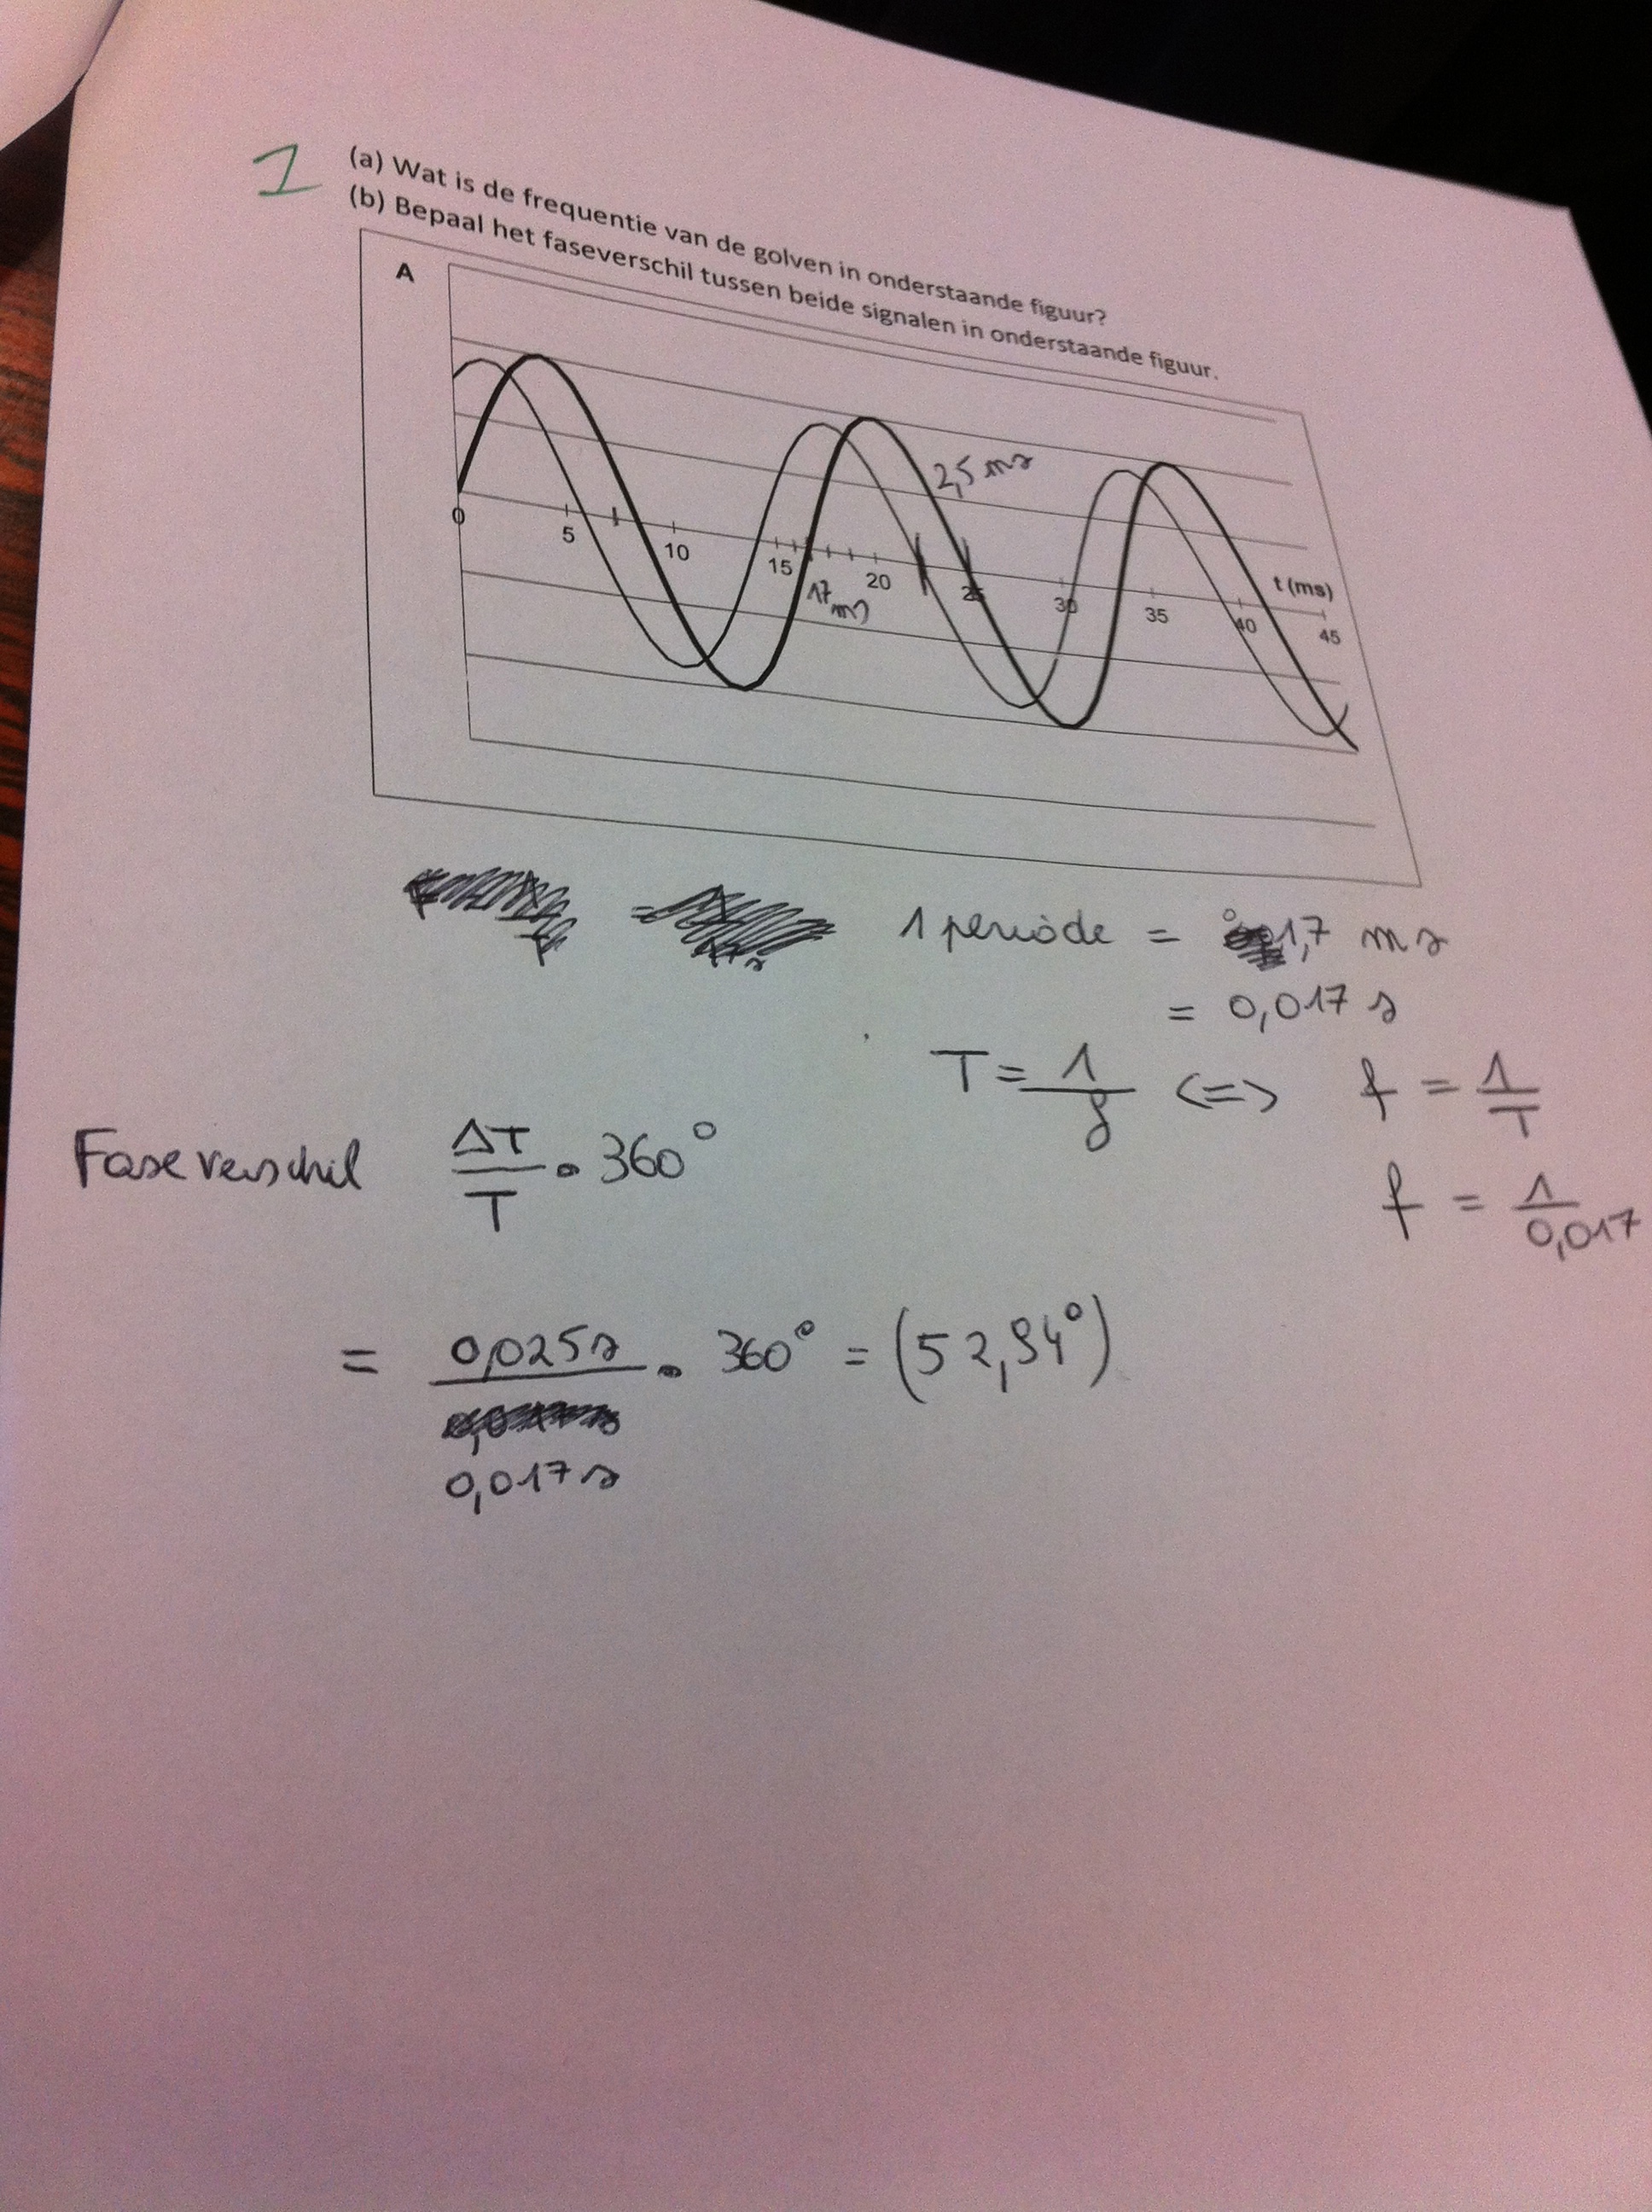 1
(a) Wat is de frequentie van de golven in onderstaande figuur?
(b) Bepaal het faseverschil tussen beide signalen in onderstaande figuur.
A
2,5 ms
t (ms)
0 5 10 15 20 25 30 35 40 45
17 ms
1 periode = 1,7 ms
= 0,017 s
T = 1/f <=> f = 1/T
f = 1/0,017
Faseverschil ΔT/T • 360°
= 0,025s/0,017s • 360° = (52,94°)